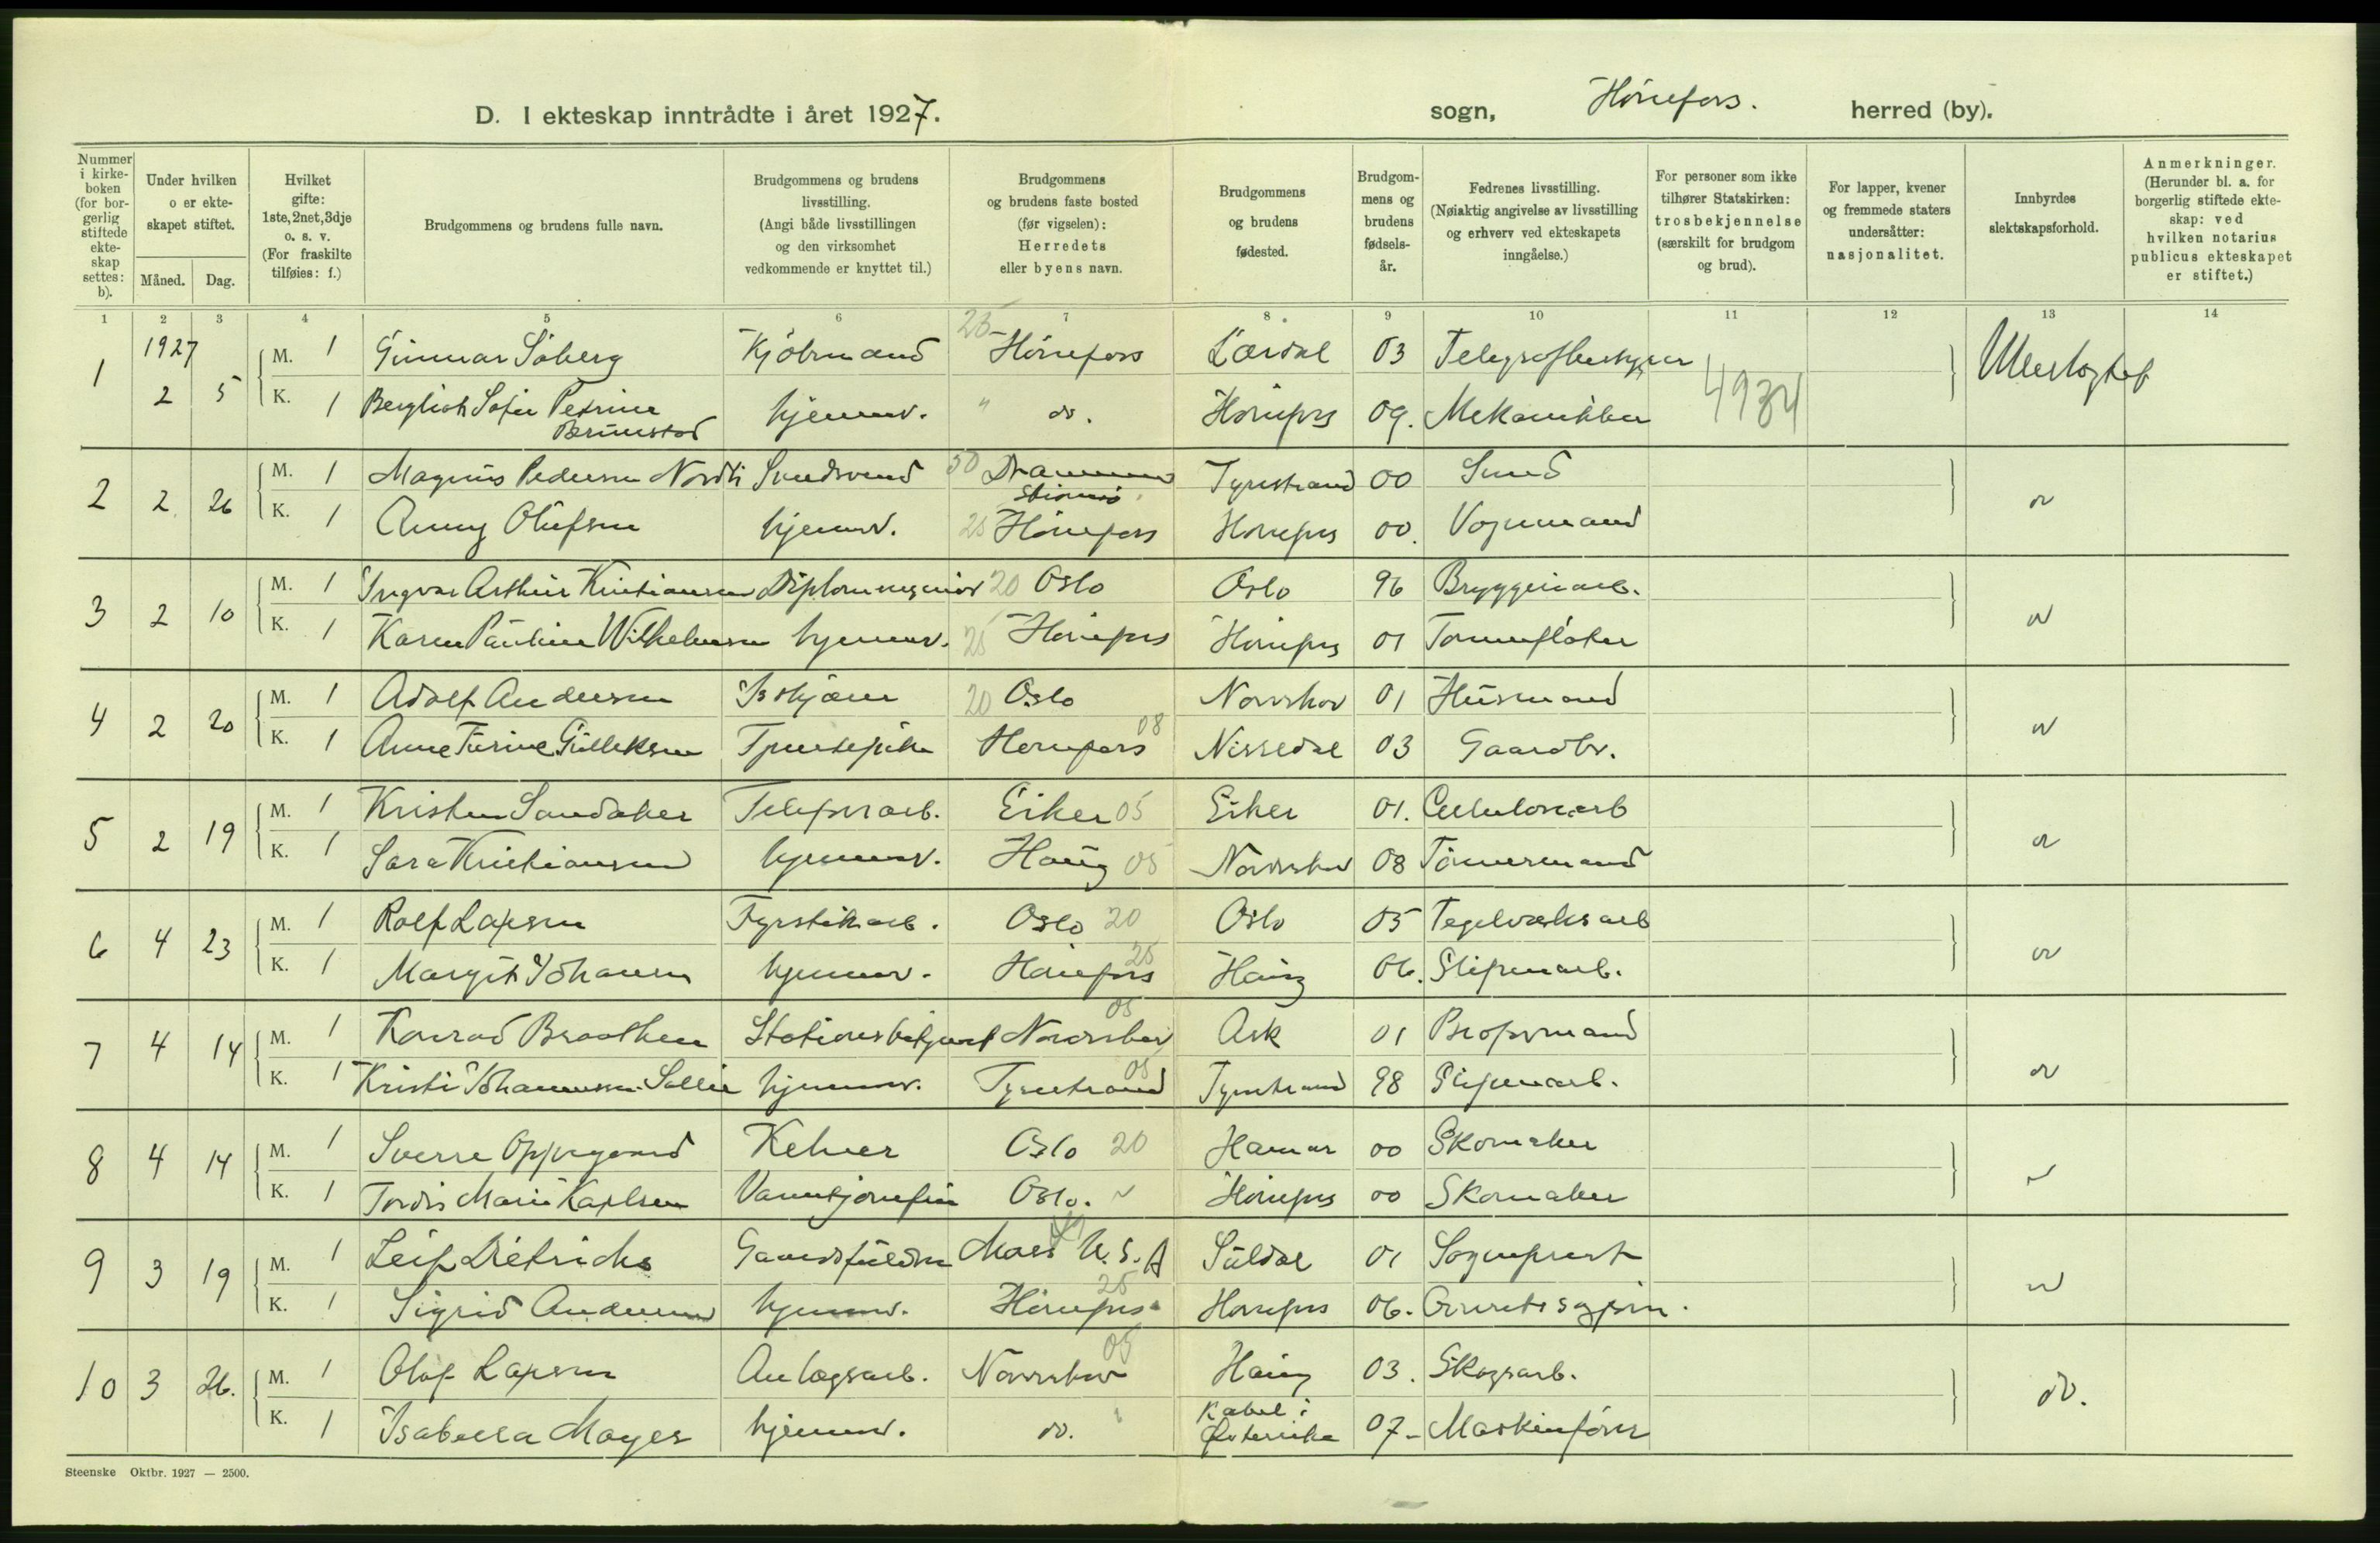 D. I ekteskap inntrådte i året 1927.
sogn, Hönefoss. herred (by).
Nummer i kirke-boken (for bor-gerlig stiftede ekte-skap settes: b).
Under hvilken o er ekte-skapet stiftet.
Måned. Dag.
Hvilket gifte: 1ste, 2net, 3dje o. s. v. (For fraskilte tilføies: f.)
Brudgommens og brudens fulle navn.
Brudgommens og brudens livsstilling. (Angi både livsstillingen og den virksomhet vedkommende er knyttet til.)
Brudgommens og brudens faste bosted (før vigselen): Herredets eller byens navn.
Brudgommens og brudens fødested.
Brudgom-mens og brudens fødsels-år.
Fedrenes livsstilling. (Nøiaktig angivelse av livsstilling og erhverv ved ekteskapets inngåelse.)
For personer som ikke tilhører Statskirken: trosbekjennelse (særskilt for brudgom og brud).
For lapper, kvener og fremmede staters undersåtter: nasjonalitet.
Innbyrdes slektskapsforhold.
Anmerkninger. (Herunder bl. a. for borgerlig stiftede ekte-skap: ved hvilken notarius publicus ekteskapet er stiftet.)
1 2 3 4 5 6 7 8 9 10 11 12 13 14
1927
1 2 5 M. 1 Gunnar Söberg Kjöbmand 25 Hönefoss Lærdal 03 Telegrafbestyrer
K. 1 Bergliot Sofie Petrine Brunstad hjemmev. " do. Hönefoss 09. Mekaniker 4934
2 2 26 M. 1 Magnus Pedersen Nordli Svendsvend 50 Drammen Strømsö Tyristrand 00 Smed
K. 1 Anny Olufsen hjemmev. 25 Hönefoss Hönefoss 00. Vognmand
3 2 10 M. 1 Ingvar Arthur Kristiansen Diplomingeniör 20 Oslo Oslo 96 Bryggeriarb.
K. 1 Karen Pauline Wilhelmsen hjemmev. 25 Hönefoss Hönefoss 01 Tömmerfløter
4 2 20 M. 1 Adolf Andersen 20 Oslo Norderhov 01 Husmand
K. 1 Anne Turine Gulleksen Tjenestepike Hönefoss 08 Nissedal 03 Gaardbr.
5 2 19 M. 1 Kristen Sandaker Telefonarb. Eiker 05 Eiker 01. Cellulosearb
K. 1 Sara Kristiansen hjemmev. Haug 05 Norderhov 08 Tömmermand
6 4 23 M. 1 Rolf Larsen Fyrstikarb. Oslo 20 Oslo 05 Tegelverksarb
K. 1 Margit Johansen hjemmev. Hönefoss 25 Haug 06. Sliperiarb.
7 4 14 M. 1 Konrad Braathen Stationsbetjent Norderhov 05 Ask 01 Bropsmand
K. 1 Kristi Johannesen Sollie hjemmev. Tyristrand 05 Tyristrand 98 Sliperiarb.
8 4 14 M. 1 Sverre Oppegaard Kelner Oslo 20 Hamar 00 Skomaker
K. 1 Tordis Marie Karlsen Oslo. Hönefoss 00 Skomaker
9 3 19 M. 1 Leif Dietrichs Mass U.S.A Suldal 01 Sogneprest
K. 1 Sigrid Andersen hjemmev. Hönefoss 25 Hönefoss 06.
10 3 26. M. 1 Olaf Larsen Anlægsarb. Norderhov 05 Haug 03. Skogsarb.
K. 1 Isabella Mayer hjemmev. do. Kabel i Østerrike 07 Maskinförer
do.
Steenske Oktbr. 1927 — 2500.